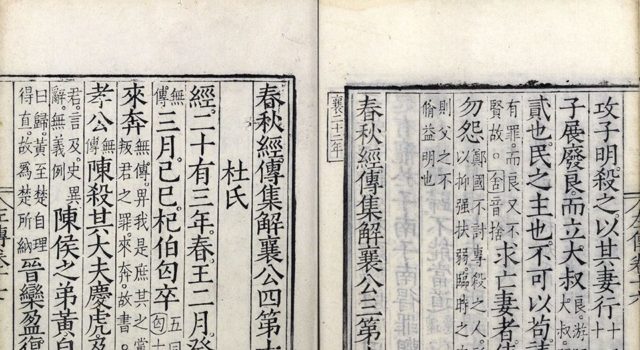 攻子明殺之以其妻行
子展廢良。而立大叔
貳也。民之主也。不可以苟
有罪。而良又不
賢故。舍音捨
求亡妻者
勿怨
鄭國不討專殺之人。
以抑强扶弱。臨時之
則父之不
脩益明也
春秋經傳集解襄公三第
襄二十二年
春秋經傳集解襄公四第
杜氏
經。二十有三年。春。王二月。癸
無傳
三月。己巳。杞伯匄卒
來奔
無傳。畀我是庶其之黨
叛君之罪來奔。故書
孝公
無傳
陳殺其大夫慶虎及
君。言及。史異
辭。無義例
陳侯之弟黃自
曰歸。黃至楚自理
得直。故爲楚所納
晉欒盈復